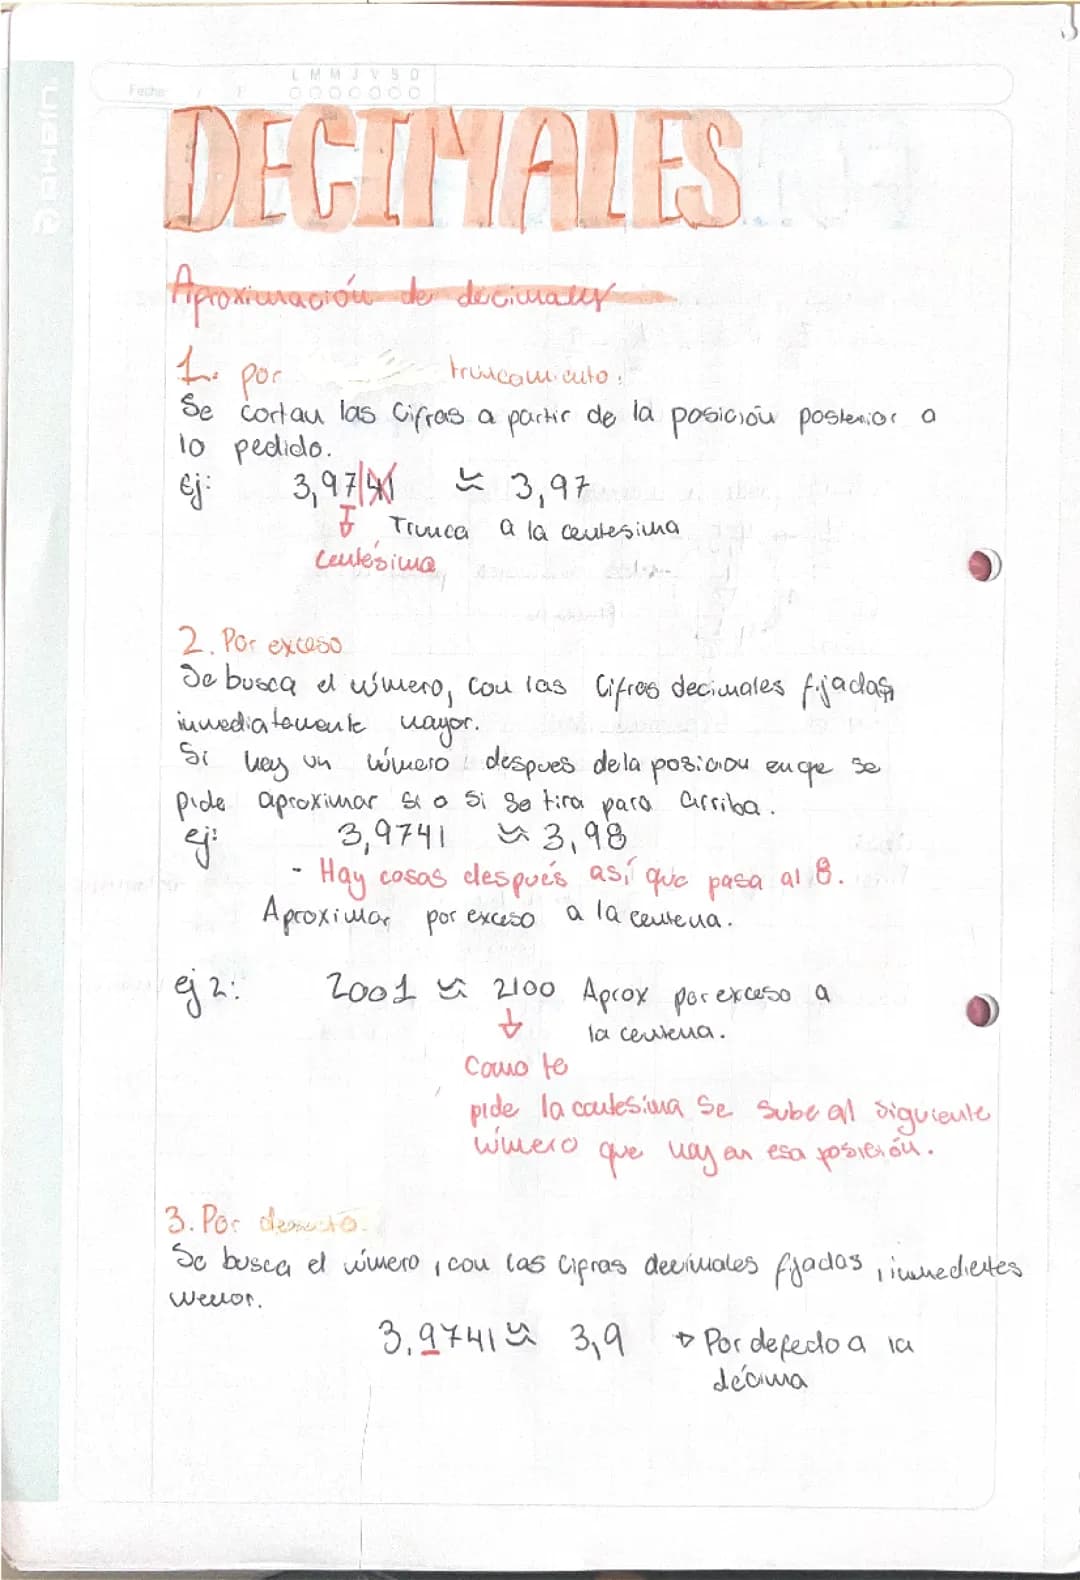 Fecha / /
L M M J V S D
DECIMALES
Aproximación de decimales
1. por truncamiento.
Se cortan las cifras a partir de la posición posterior a
lo pedido.
Ej: 3,97|41 ≈ 3,97
Trunca a la centesima
centésima
2. Por exceso
Se busca el número, con las cifras decimales fijadas,
inmediatamente mayor.
Si hay un número despues de la posicion en que se
pide aproximar si o si se tira para arriba.
ej: 3,9741 ≈ 3,98
- Hay cosas después así que pasa al 8.
Aproximar por exceso a la centena.
ej 2: 2001 ≈ 2100 Aprox por exceso a
la centena.
Como te
pide la centesima se sube al siguiente
número que hay en esa posición.
3. Por defecto.
Se busca el número, con las cifras decimales fijadas, inmediates
menor.
3,9741 ≈ 3,9 → Por defecto a la
décima